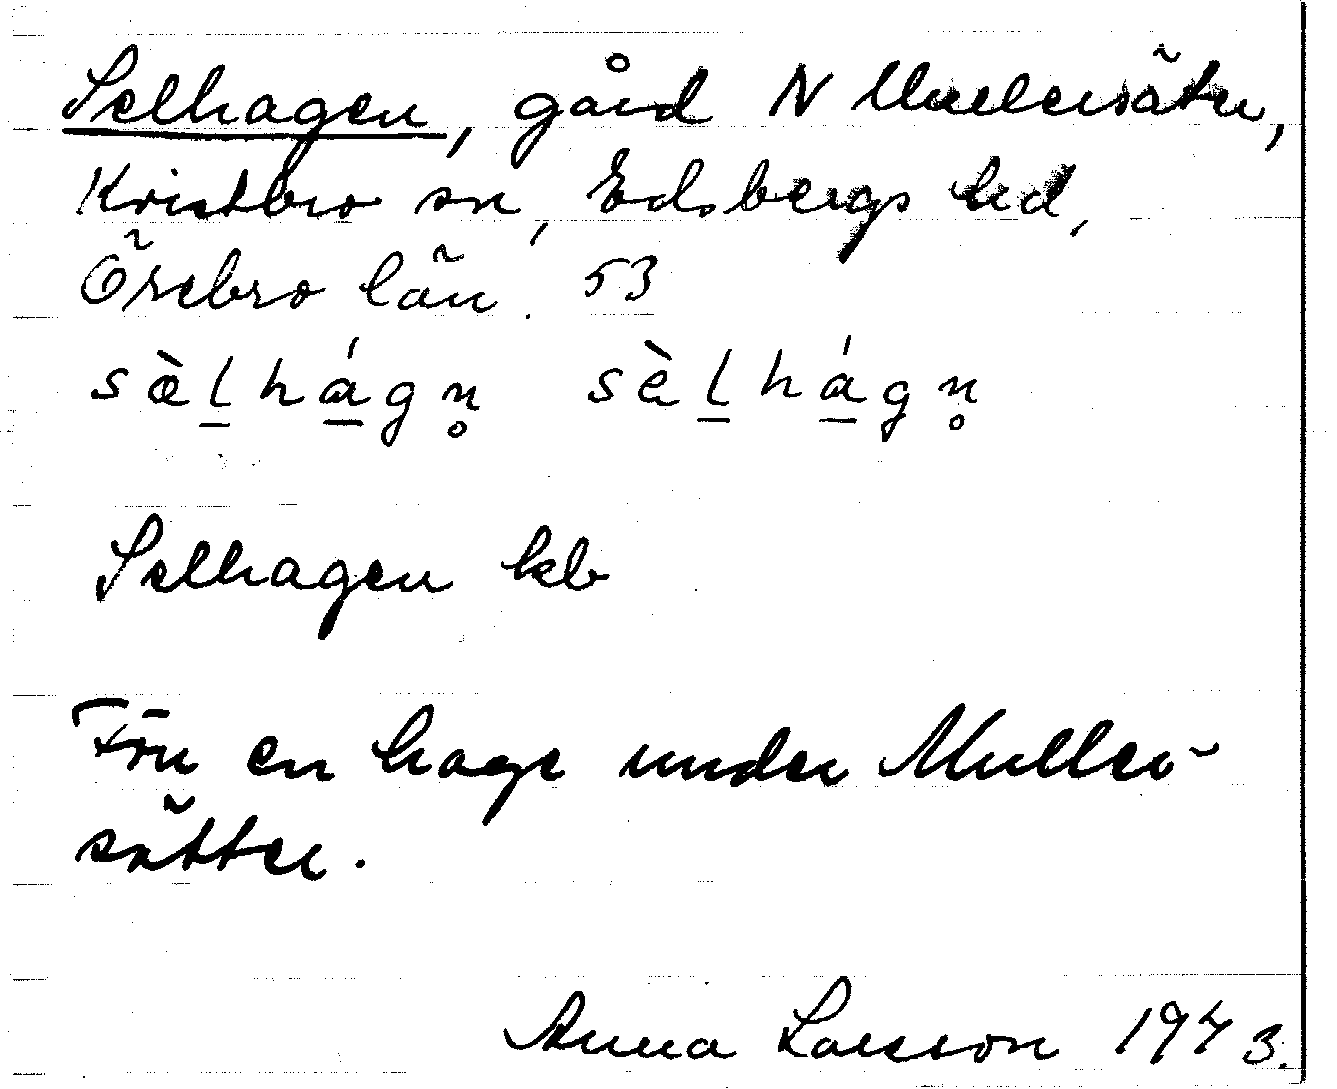 Selhagen, gård N Mullersäter,
Kvistbro sn, Edsbergs hd,
Örebro län. 53
sæ̀l̲há̲gn̥ sèl̲há̲gn̥
Selhagen kb
Förr en hage under Muller-
sätter.
Anna Larsson 1973.